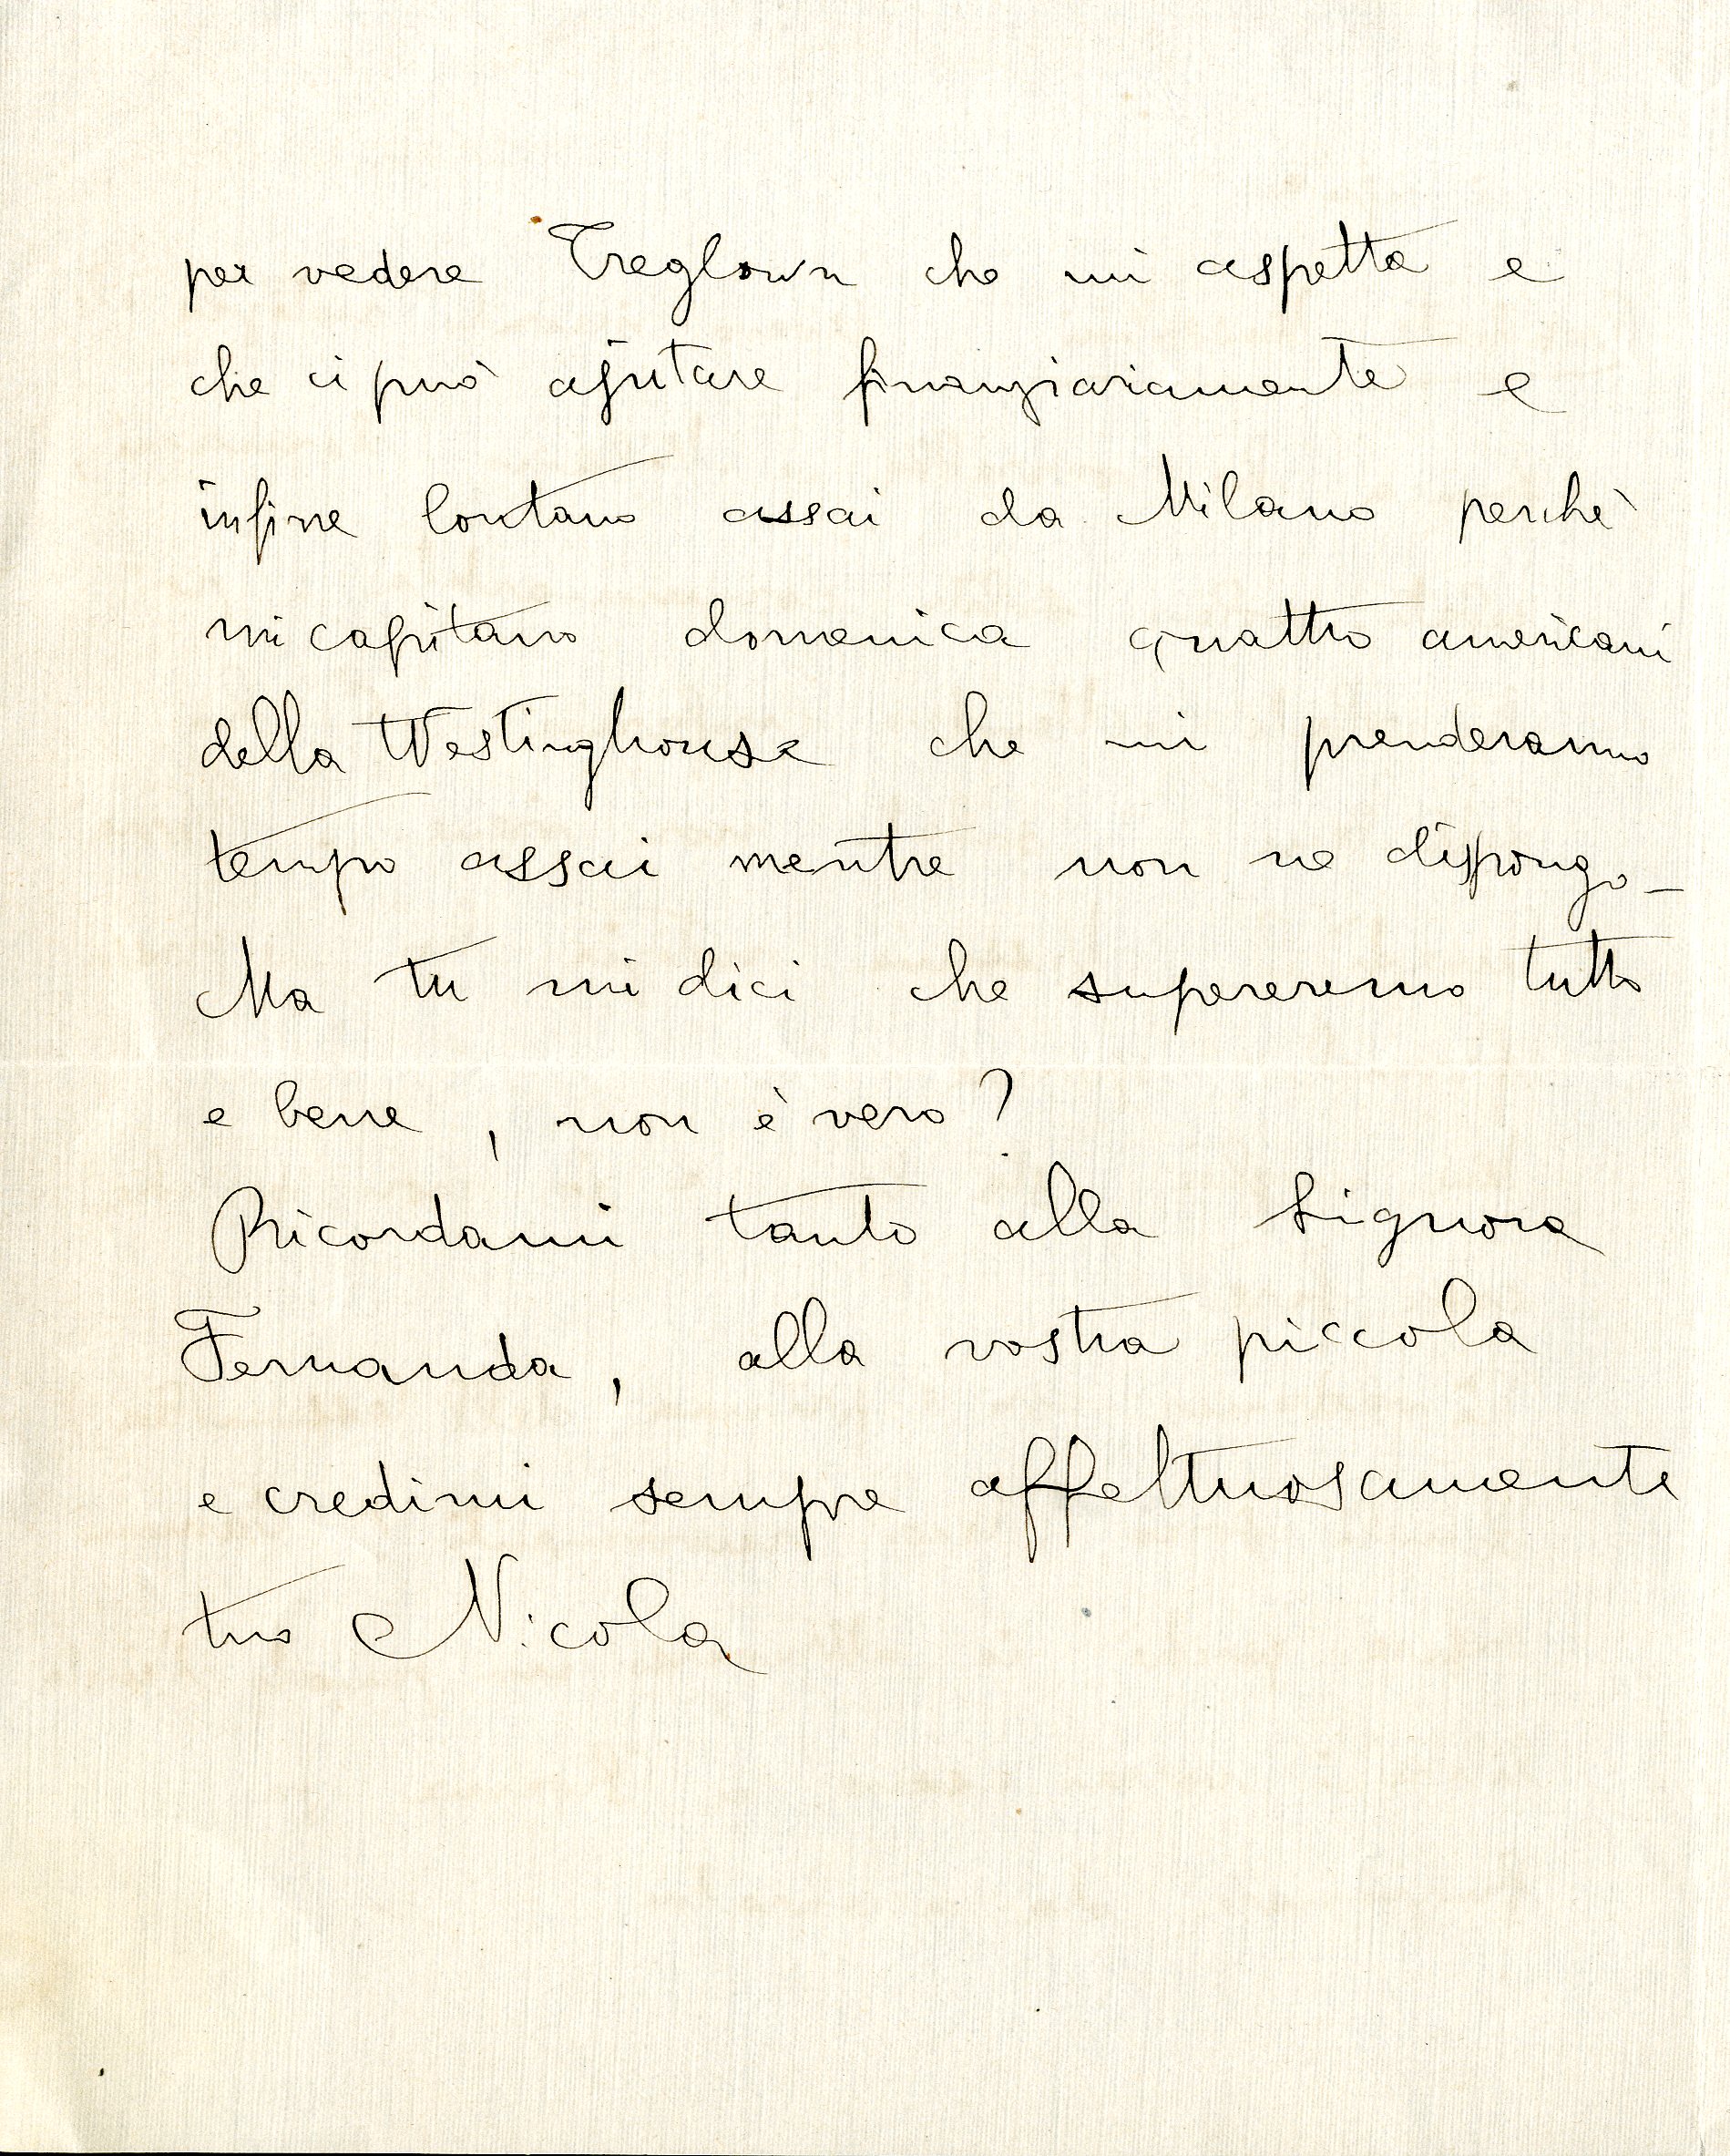 per vedere Treglown che mi aspetta e
che ci può ajutare finanziariamente e
infine lontano assai da Milano perchè
mi capitano domenica quattro americani
della Westinghouse che mi prenderanno
tempo assai mentre non ne dispongo_
Ma tu mi dici che supereremo tutto
e bene, non è vero?
Ricordami tanto alla Signora
Fernanda, alla vostra piccola
e credimi sempre affettuosamente
tuo Nicola